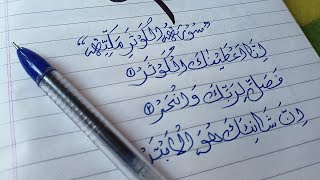 ”سُوْرَةُ الْكَوْثَرِ مَكِّيَّةٌ“
اِنَّا اَعْطَيْنٰكَ الْكَوْثَرَ ①
فَصَلِّ لِرَبِّكَ وَانْحَرْ ②
اِنَّ شَانِئَكَ هُوَ الْاَبْتَرُ